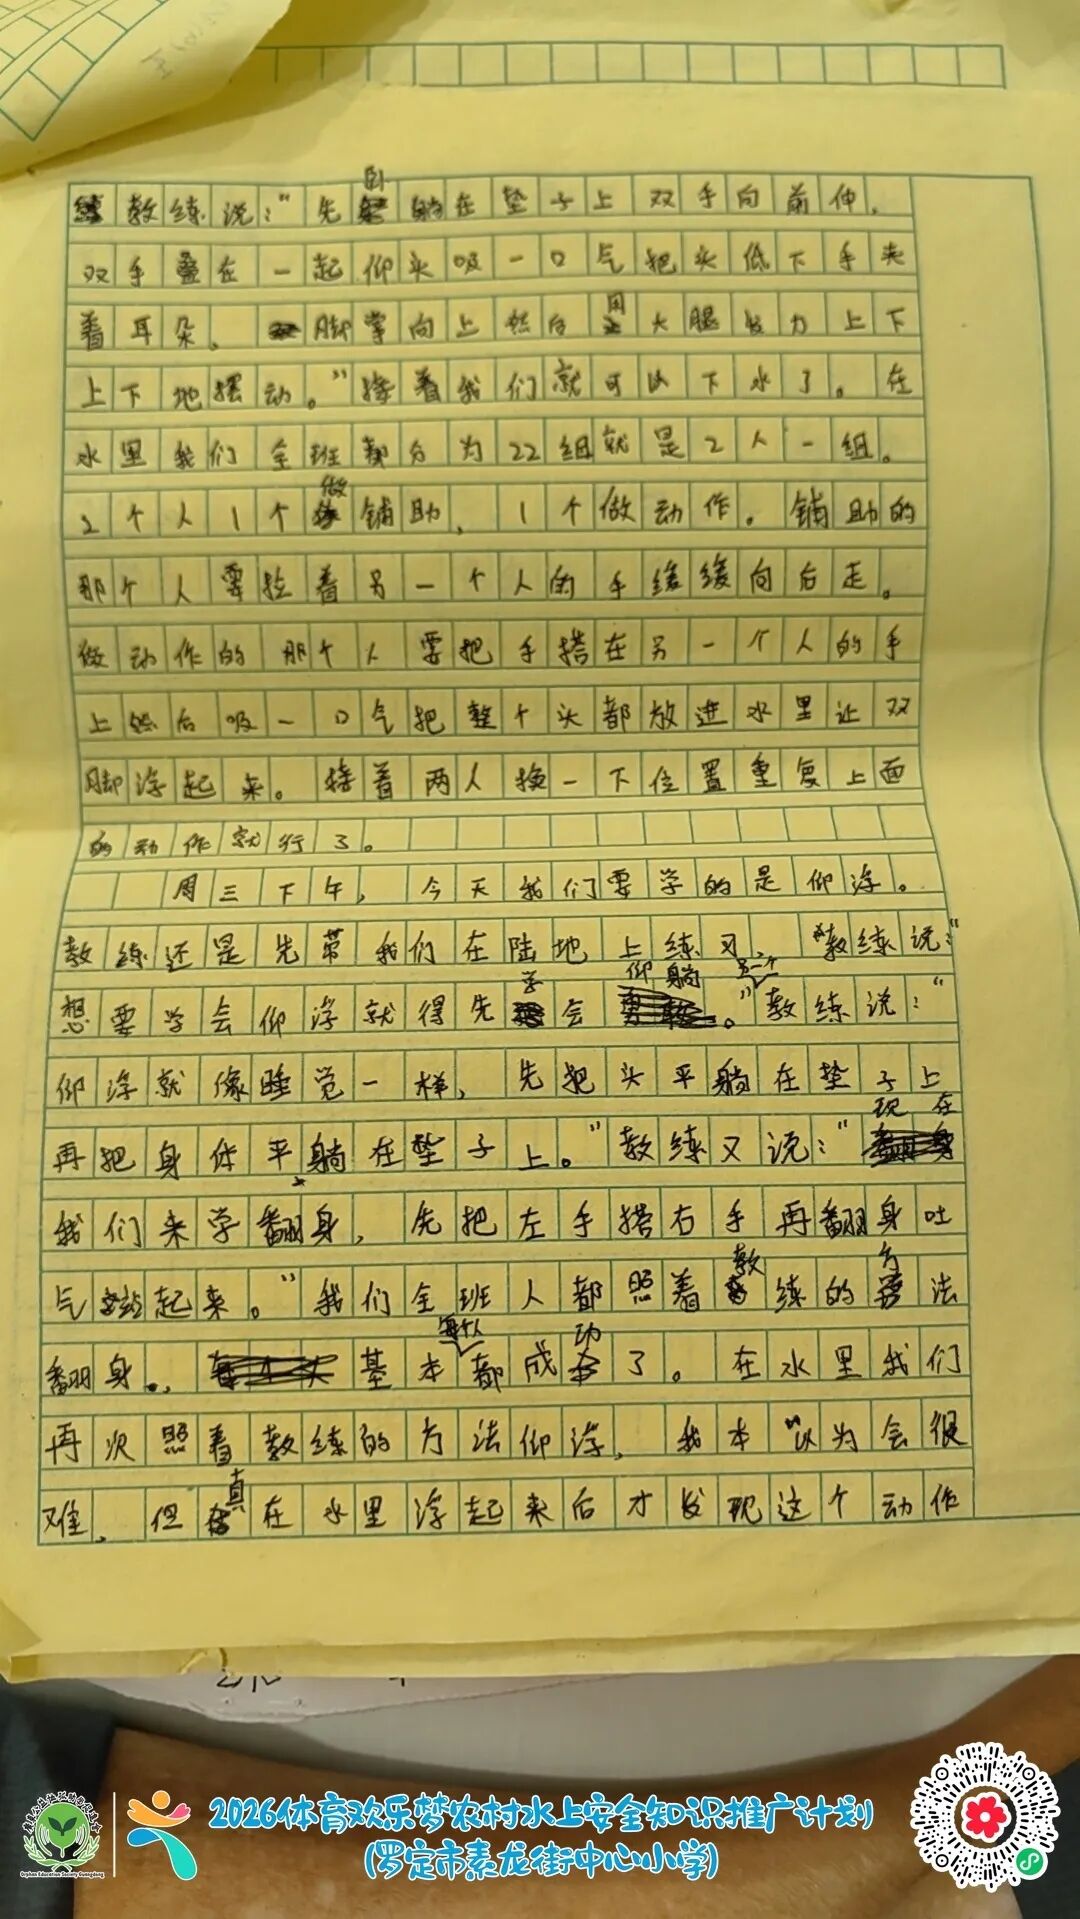 教练说：“先卧躺在垫子上双手向前伸，
双手叠在一起仰头吸一口气把头低下手夹
着耳朵，脚掌向上然后用大腿发力上下
上下地摆动。”接着我们就可以下水了。在
水里我们全班都分为22组就是2人一组。
2个人1个做铺助，1个做动作。铺助的
那个人要拉着另一个人的手缓缓向后走。
做动作的那个人要把手搭在另一个人的手
上然后吸一口气把整个头都放进水里让双
脚浮起来。接着两人换一下位置重复上面
的动作就行了。
周三下午，今天我们要学的是仰浮。
教练还是先带我们在陆地上练习，教练说：“
想要学会仰浮就得先学会仰躺。”另一个教练说：“
仰浮就像睡觉一样，先把头平躺在垫子上
再把身体平躺在垫子上。”教练又说：“现在
我们来学翻身，先把左手搭右手再翻身吐
气站起来。”我们全班人都照着教练的方法
翻身，基本每个人都成功了。在水里我们
再次照着教练的方法仰浮，我本以为会很
难，但真在水里浮起来后才发现这个动作
2026体育欢乐梦农村水上安全知识推广计划
(罗定市素龙街中心小学)